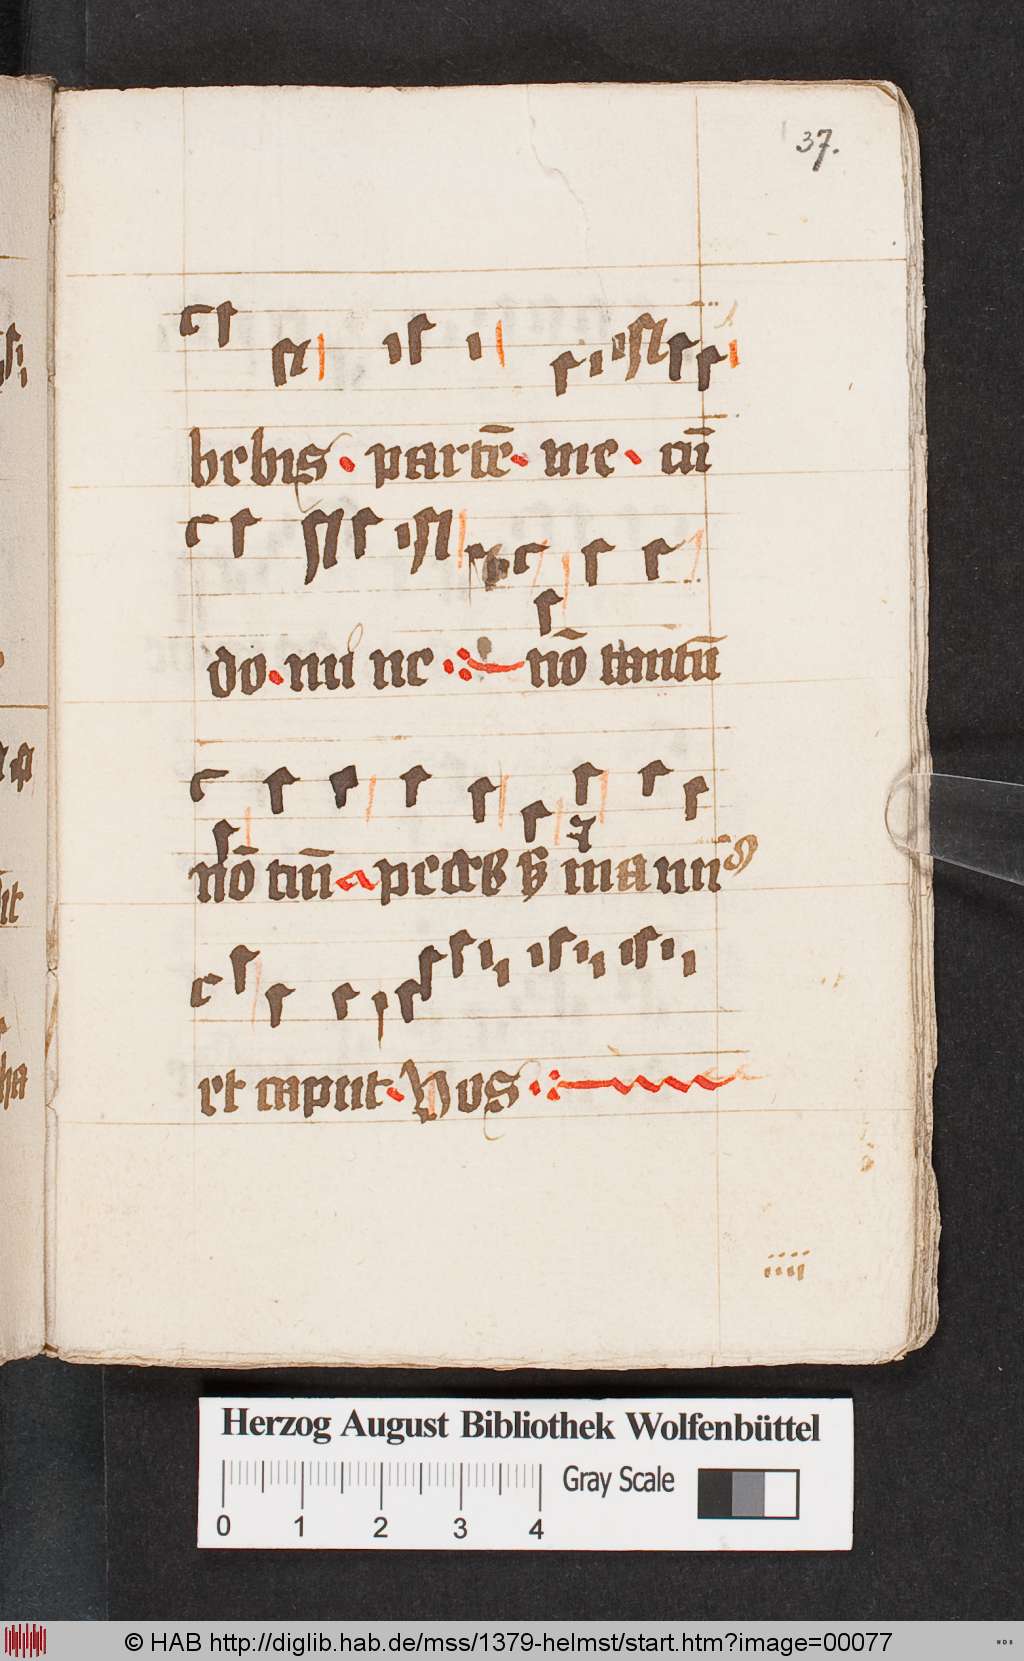 37.
bebis · partē · me · cū
do · mi ne · nō tantū
nō tm̄ pedes
et caput · Vos
iiij
Herzog August Bibliothek Wolfenbüttel
Gray Scale
0 1 2 3 4
© HAB http://diglib.hab.de/mss/1379-helmst/start.htm?image=00077